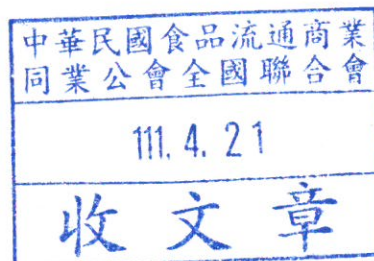 中華民國食品流通商業
同業公會全國聯合會
111. 4. 21
收文章